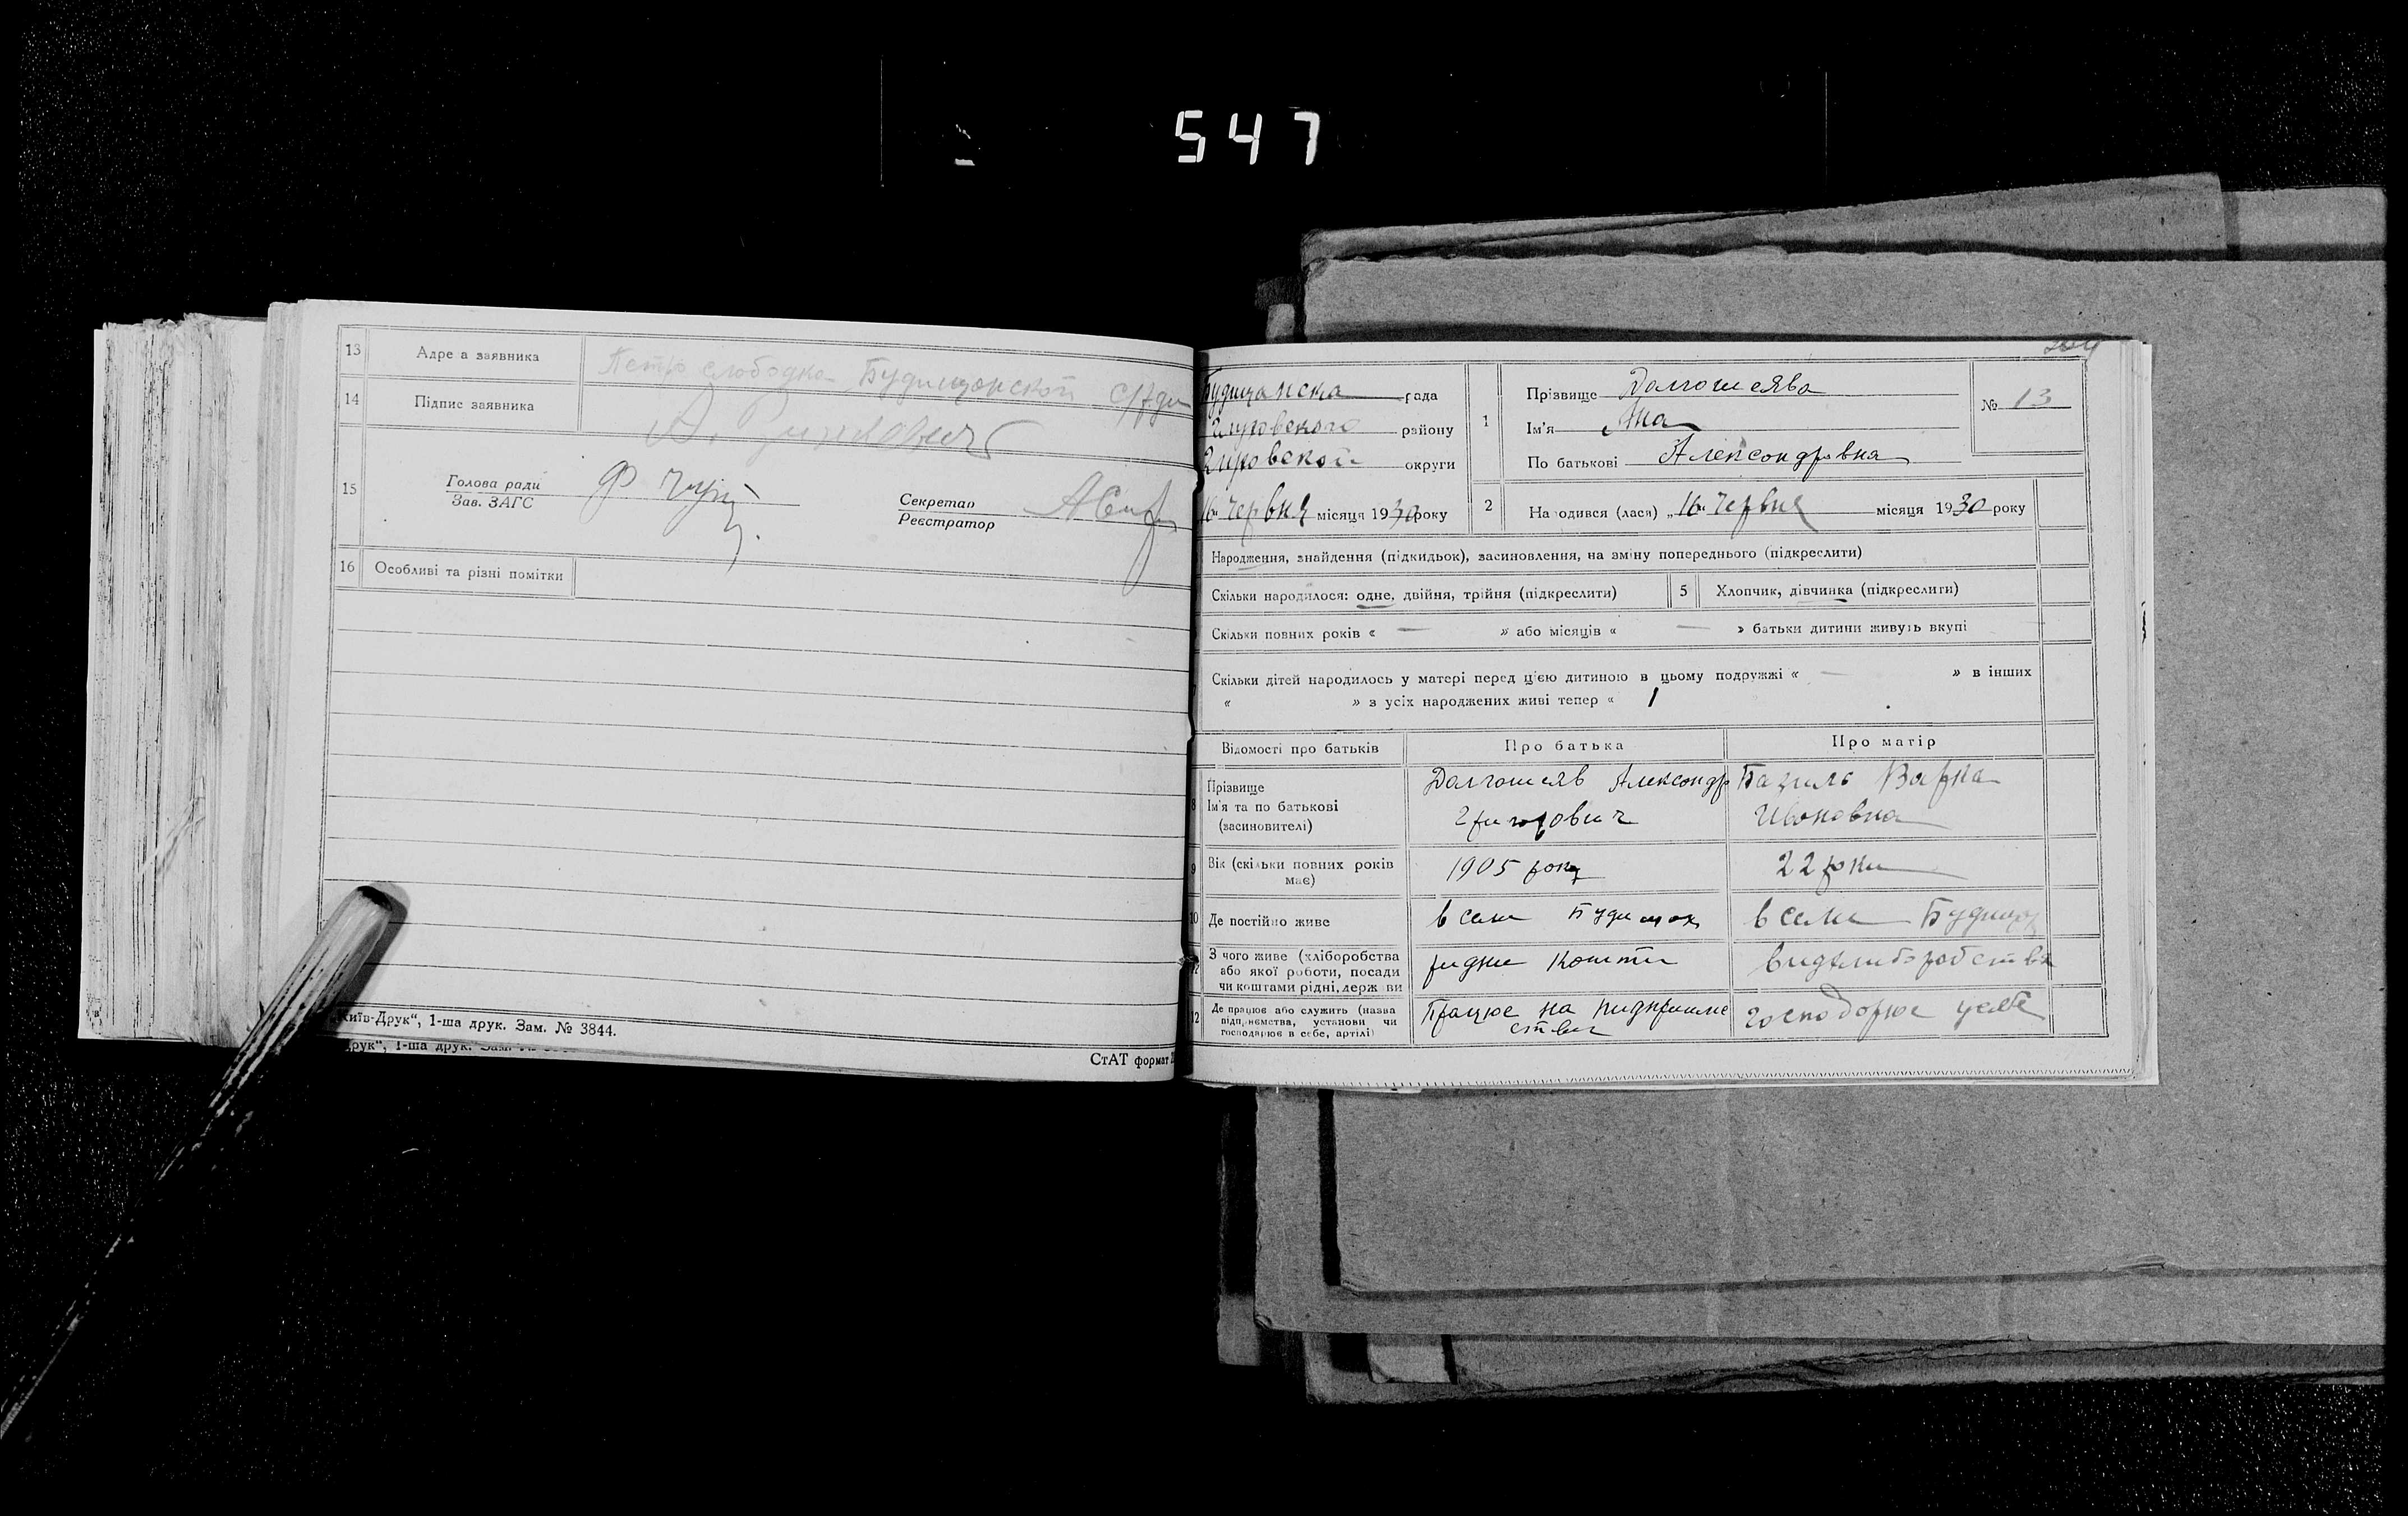 547
13 Адре а заявника Петро слободка Будищанской с/ради
14 Підпис заявника
15 Голова ради Ф.
Зав. ЗАГС
Секретар
Реєстратор
16 Особливі та різні помітки
"Київ-Друк", 1-ша друк. Зам. № 3844.
друк", 1-ша друк. Зам. №
СтАТ формат
Будищанска рада
района району
округи
16 червня місяця 1930 року
1 Прізвище Долгошеява
Ім'я Ана
По батькові Александровна
№ 13
2 На одився (лася) „16" червня місяця 1930 року
Народження, знайдення (підкидьок), засиновлення, на зміну попереднього (підкреслити)
Скільки народилося: одне, двійня, трійня (підкреслити) 5 Хлопчик, дівчинка (підкреслити)
Скільки повних років « — » або місяців « — » батьки дитини живуть вкупі
Скільки дітей народилось у матері перед цією дитиною в цьому подружжі « — » в інших
« » з усіх народжених живі тепер « 1
Відомості про батьків Про батька Про матір
8 Прізвище
Ім'я та по батькові
(засиновителі)
Долгошеяв Александр
Григорович
Варка
Ивановна
9 Вік (скільки повних років
має)
1905 року
22 роки
10 Де постійно живе в сели Будищах в сели Будищах
З чого живе (хліборобства
або якої роботи, посади
чи коштами рідні, держ ви
ридни кошти
12 Де працює або служить (назва
підп. ємства, установи чи
господарює в себе, артілі)
Працює на пидприме
стви
господорює усебе